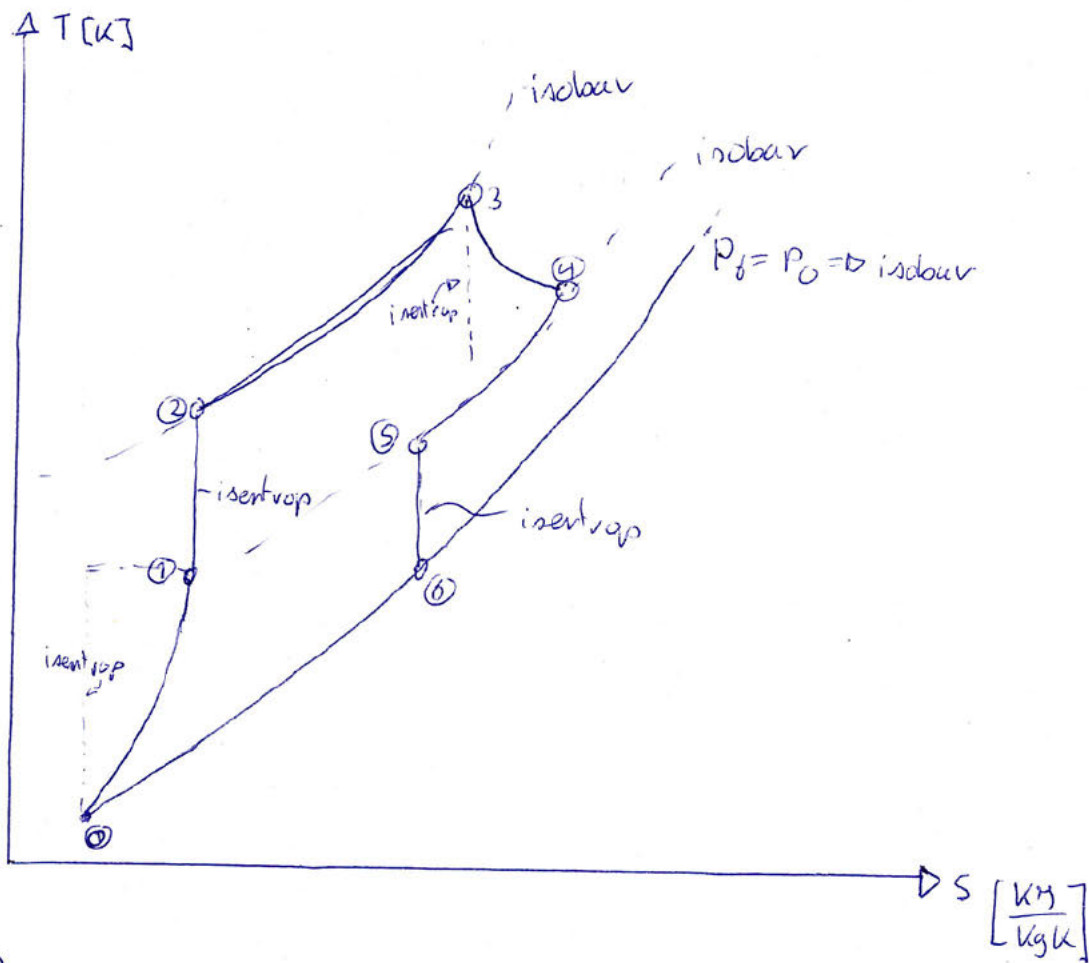 T [K]
isobar
isobar
3
④
P₆ = P₀ => isobar
isentrop
②
⑤
isentrop
isentrop
①
⑥
isentrop
⓪
S [KJ/KgK]